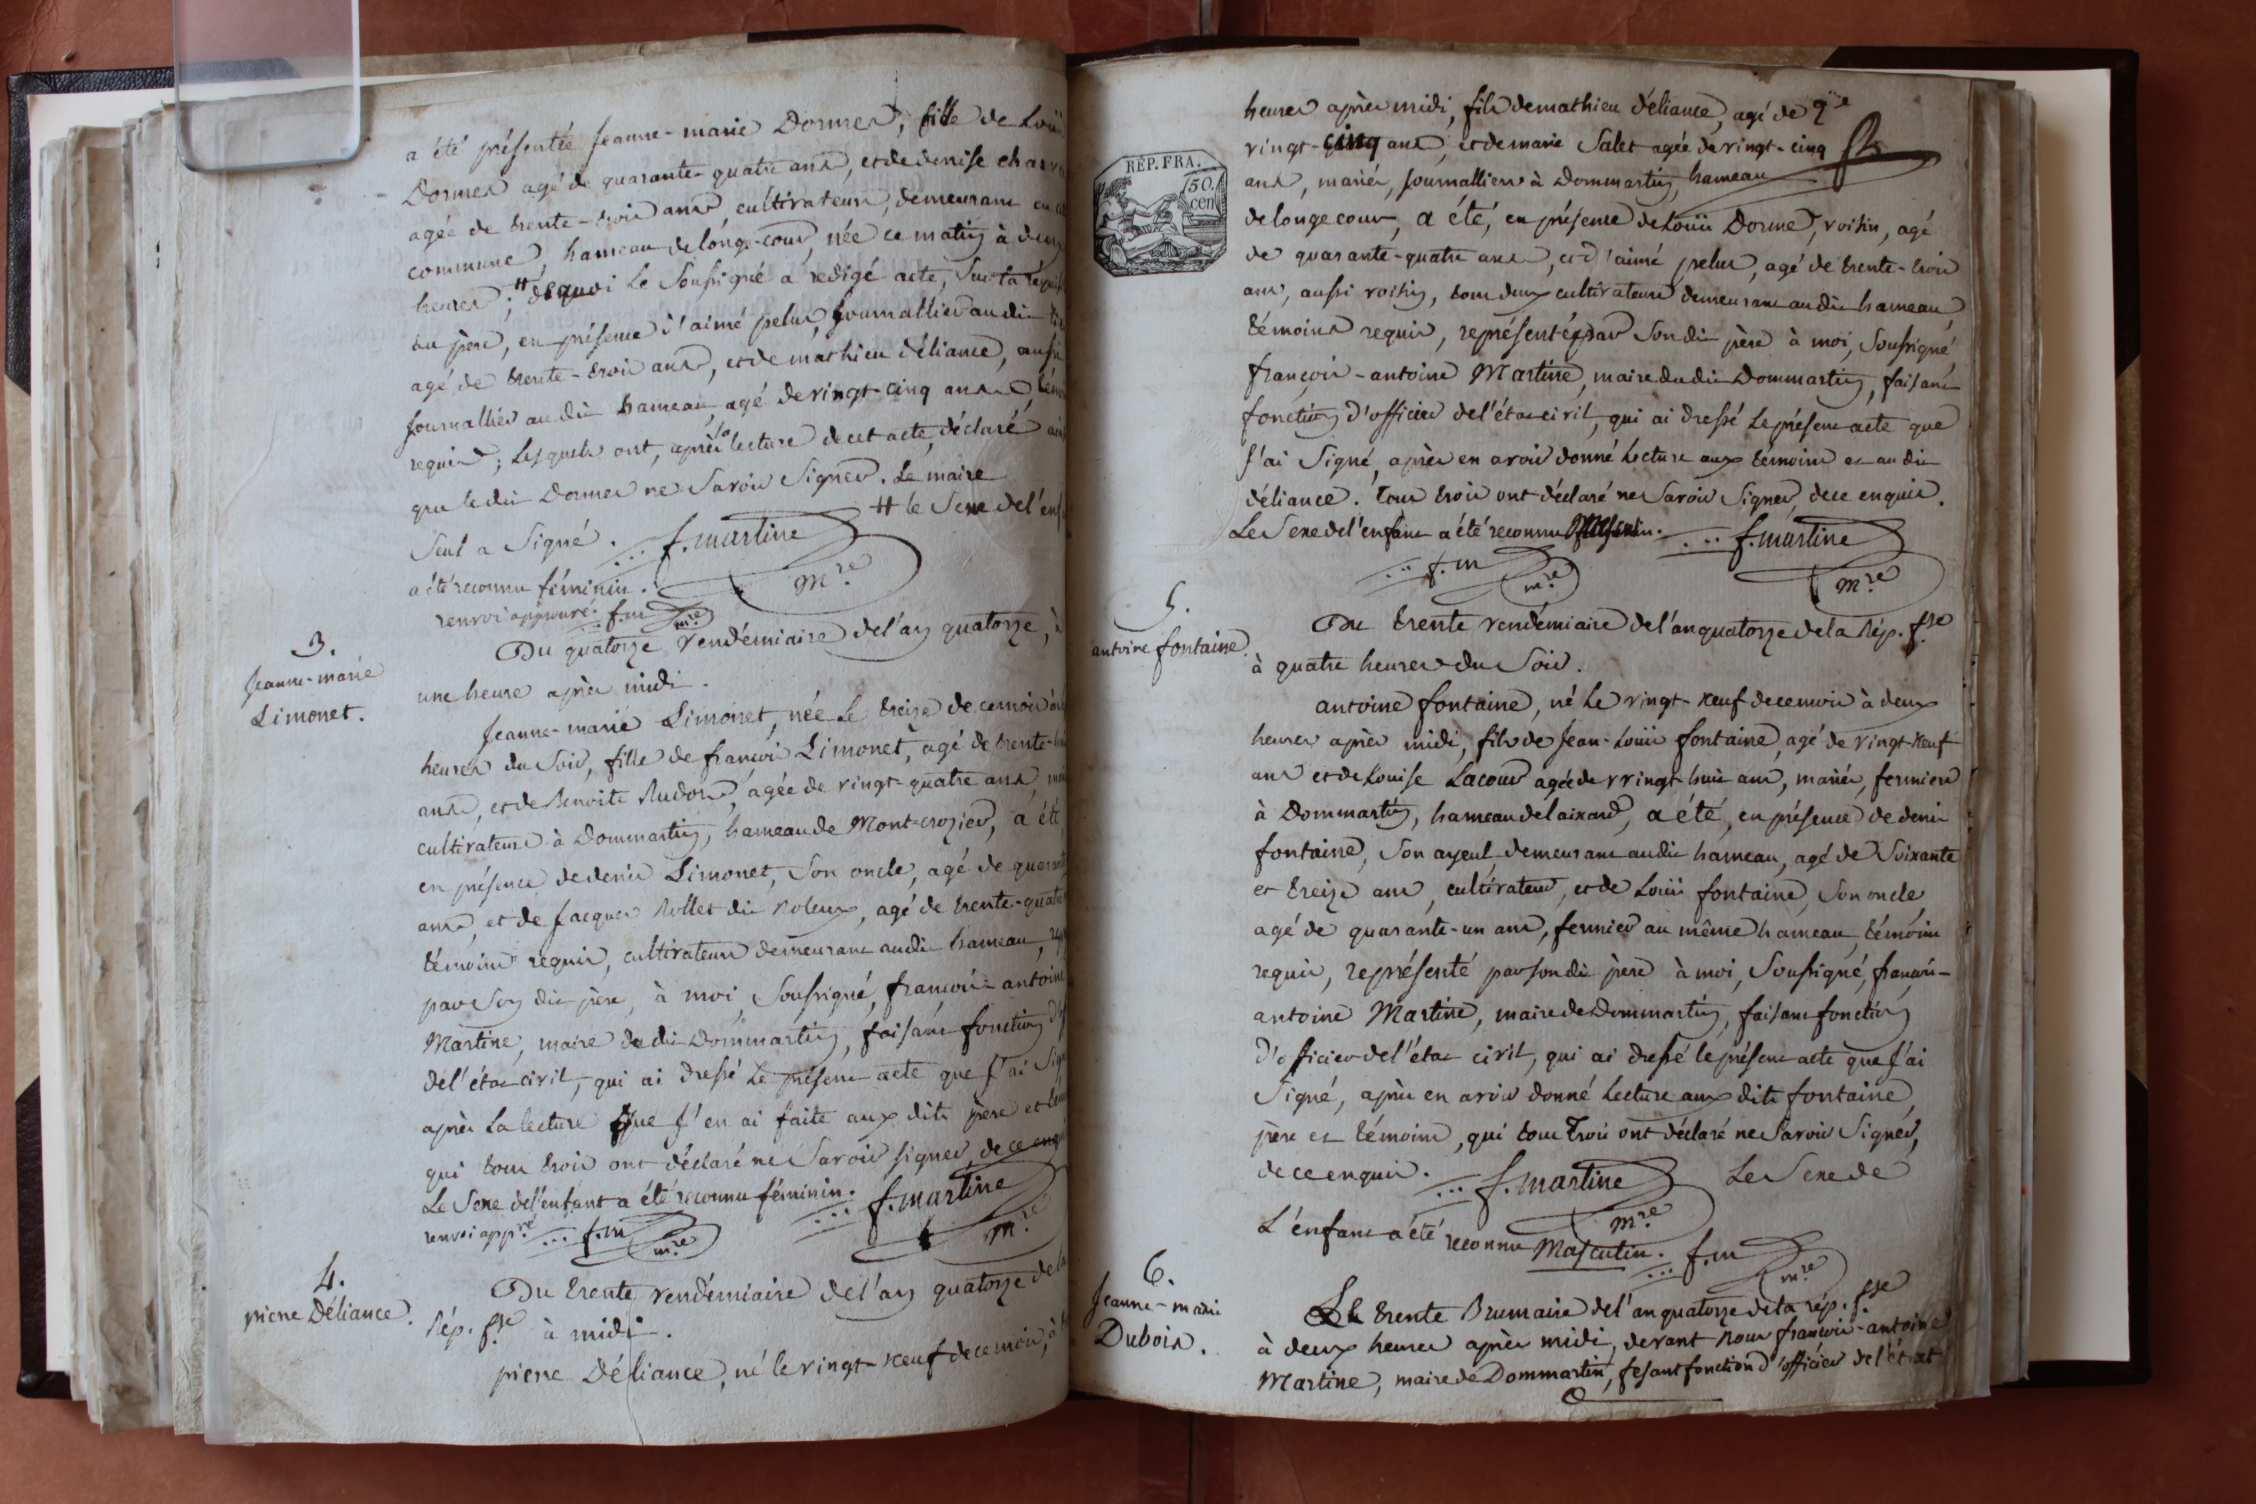 a été présentée Jeanne-marie Dormer, fille de Louis
Dormer agé de quarante-quatre ans, et de denise
agée de trente-trois ans, cultivateurs, demeurant en
commune hameau de longe-cour née ce matin à deux
heures; # de quoi le Soussigné a redigé acte, Sur la
du père, en présence d'aimé pelus, journallier au dit
agé de trente-trois ans, et de mathieu déliance, aussi
journallier au dit hameau, agé de vingt-cinq ans,
requis; lesquels ont, après la lecture de cet acte, déclaré
que le dit Dormer ne Savoir Signer. Le maire
Seul a Signé. f. martine # le Sexe de l'enf
mre
a été reconnu féminin.
renvoi approuvé. f.m mre
3.
Jeanne-marie
Limonet.
Du quatorze vendémiaire de l'an quatorze, à
une heure après midi.
Jeanne-marie Limonet, née le treize de ce mois à
heures du Soir, fille de françois Limonet, agé de trente-
ans, et de Benoite Rudon, agée de vingt-quatre ans,
cultivateurs à Dommartin, hameau de Mont-crozier, a été
en présence de denis Limonet, Son oncle, agé de
ans, et de Jacques Rollet dit Roleux, agé de trente-quatre
témoins requis, cultivateurs demeurant au dit hameau,
par Son dit père, à moi, Soussigné, françois-antoine
Martine, maire du dit Dommartin, faisant fonction
de l'état civil, qui ai dressé le présent acte que j'ai
après la lecture que j'en ai faite aux dits père et
qui tous trois ont déclaré ne Savoir signer, de ce enquis
Le Sexe de l'enfant a été reconnu féminin. f. martine
renvoi appré. f.m mre mre
4.
pierre Déliance.
Du trente vendémiaire de l'an quatorze de la
Rép. fse à midi.
pierre Déliance, né le vingt-neuf de ce mois, à
RÉP. FRA.
50.
cen
heures après midi, fils de mathieu déliance, agé de
vingt-cinq ans, et de marie Salet agée de vingt-cinq
ans, mariés, journalliers à Dommartin, hameau
de longe cour, a été, en présence de Louis Dormé, voisin, agé
de quarante-quatre ans, et d'aimé pelus, agé de trente-trois
ans, aussi voisin, tous deux cultivateurs demeurant au dit hameau,
témoins requis, représenté par Son dit père à moi, Soussigné
françois-antoine Martine, maire du dit Dommartin, faisant
fonction d'officier de l'état civil, qui ai dressé le présent acte que
j'ai Signé, après en avoir donné lecture aux témoins et au dit
déliance. Tous trois ont déclaré ne Savoir Signer, de ce enquis.
Le Sexe de l'enfant a été reconnu f. martine
f.m mre mre
5.
antoine fontaine.
Du trente vendémiaire de l'an quatorze de la Rép. fse
à quatre heures du Soir.
antoine fontaine, né le vingt-neuf de ce mois à deux
heures après midi, fils de Jean-Louis fontaine, agé de vingt-neuf
ans et de Louise Lacour agée de vingt-huit ans, mariés, fermiers
à Dommartin, hameau de laixard, a été, en présence de denis
fontaine, Son ayeul, demeurant au dit hameau, agé de Soixante
et treize ans, cultivateur, et de Louis fontaine, Son oncle
agé de quarante-un ans, fermier au même hameau, témoins
requis, représenté par son dit père à moi, Soussigné, françois-
antoine Martine, maire de Dommartin, faisant fonction
d'officier de l'état civil, qui ai dressé le présent acte que j'ai
Signé, après en avoir donné lecture aux dits fontaine,
père et témoins, qui tous trois ont déclaré ne Savoir Signer,
de ce enquis. f. martine Le Sexe de
mre
L'enfant a été reconnu Masculin. f.m mre
6.
Jeanne-marie
Dubois.
Le trente Brumaire de l'an quatorze de la rép. fse
à deux heures après midi, devant Nous françois-antoine
Martine, maire de Dommartin, fesant fonction d'officier de l'état